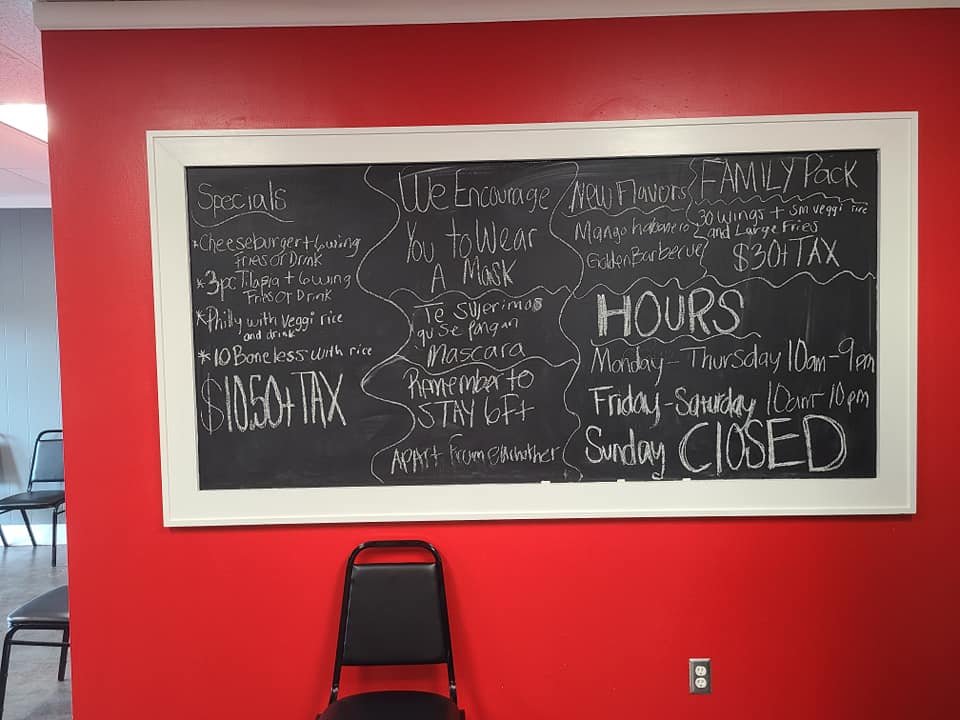 Specials
*Cheeseburger+6wing
Fries or Drink
*3pc Tilapia+6wing
Fries or Drink
*Philly with Veggi rice
and drink
*10 Boneless with rice
$10.50+TAX
We Encourage
You to Wear
A Mask
Te sujerimos
qu Se pongan
Mascara
Remember to
STAY 6Ft
APART From eachother
New Flavors
Mango habanero
Golden Barbecue
FAMILY Pack
30 wings + sm veggi rice
and Large Fries
$30+TAX
HOURS
Monday-Thursday 10am-9pm
Friday-Saturday 10am-10pm
Sunday ClOSED